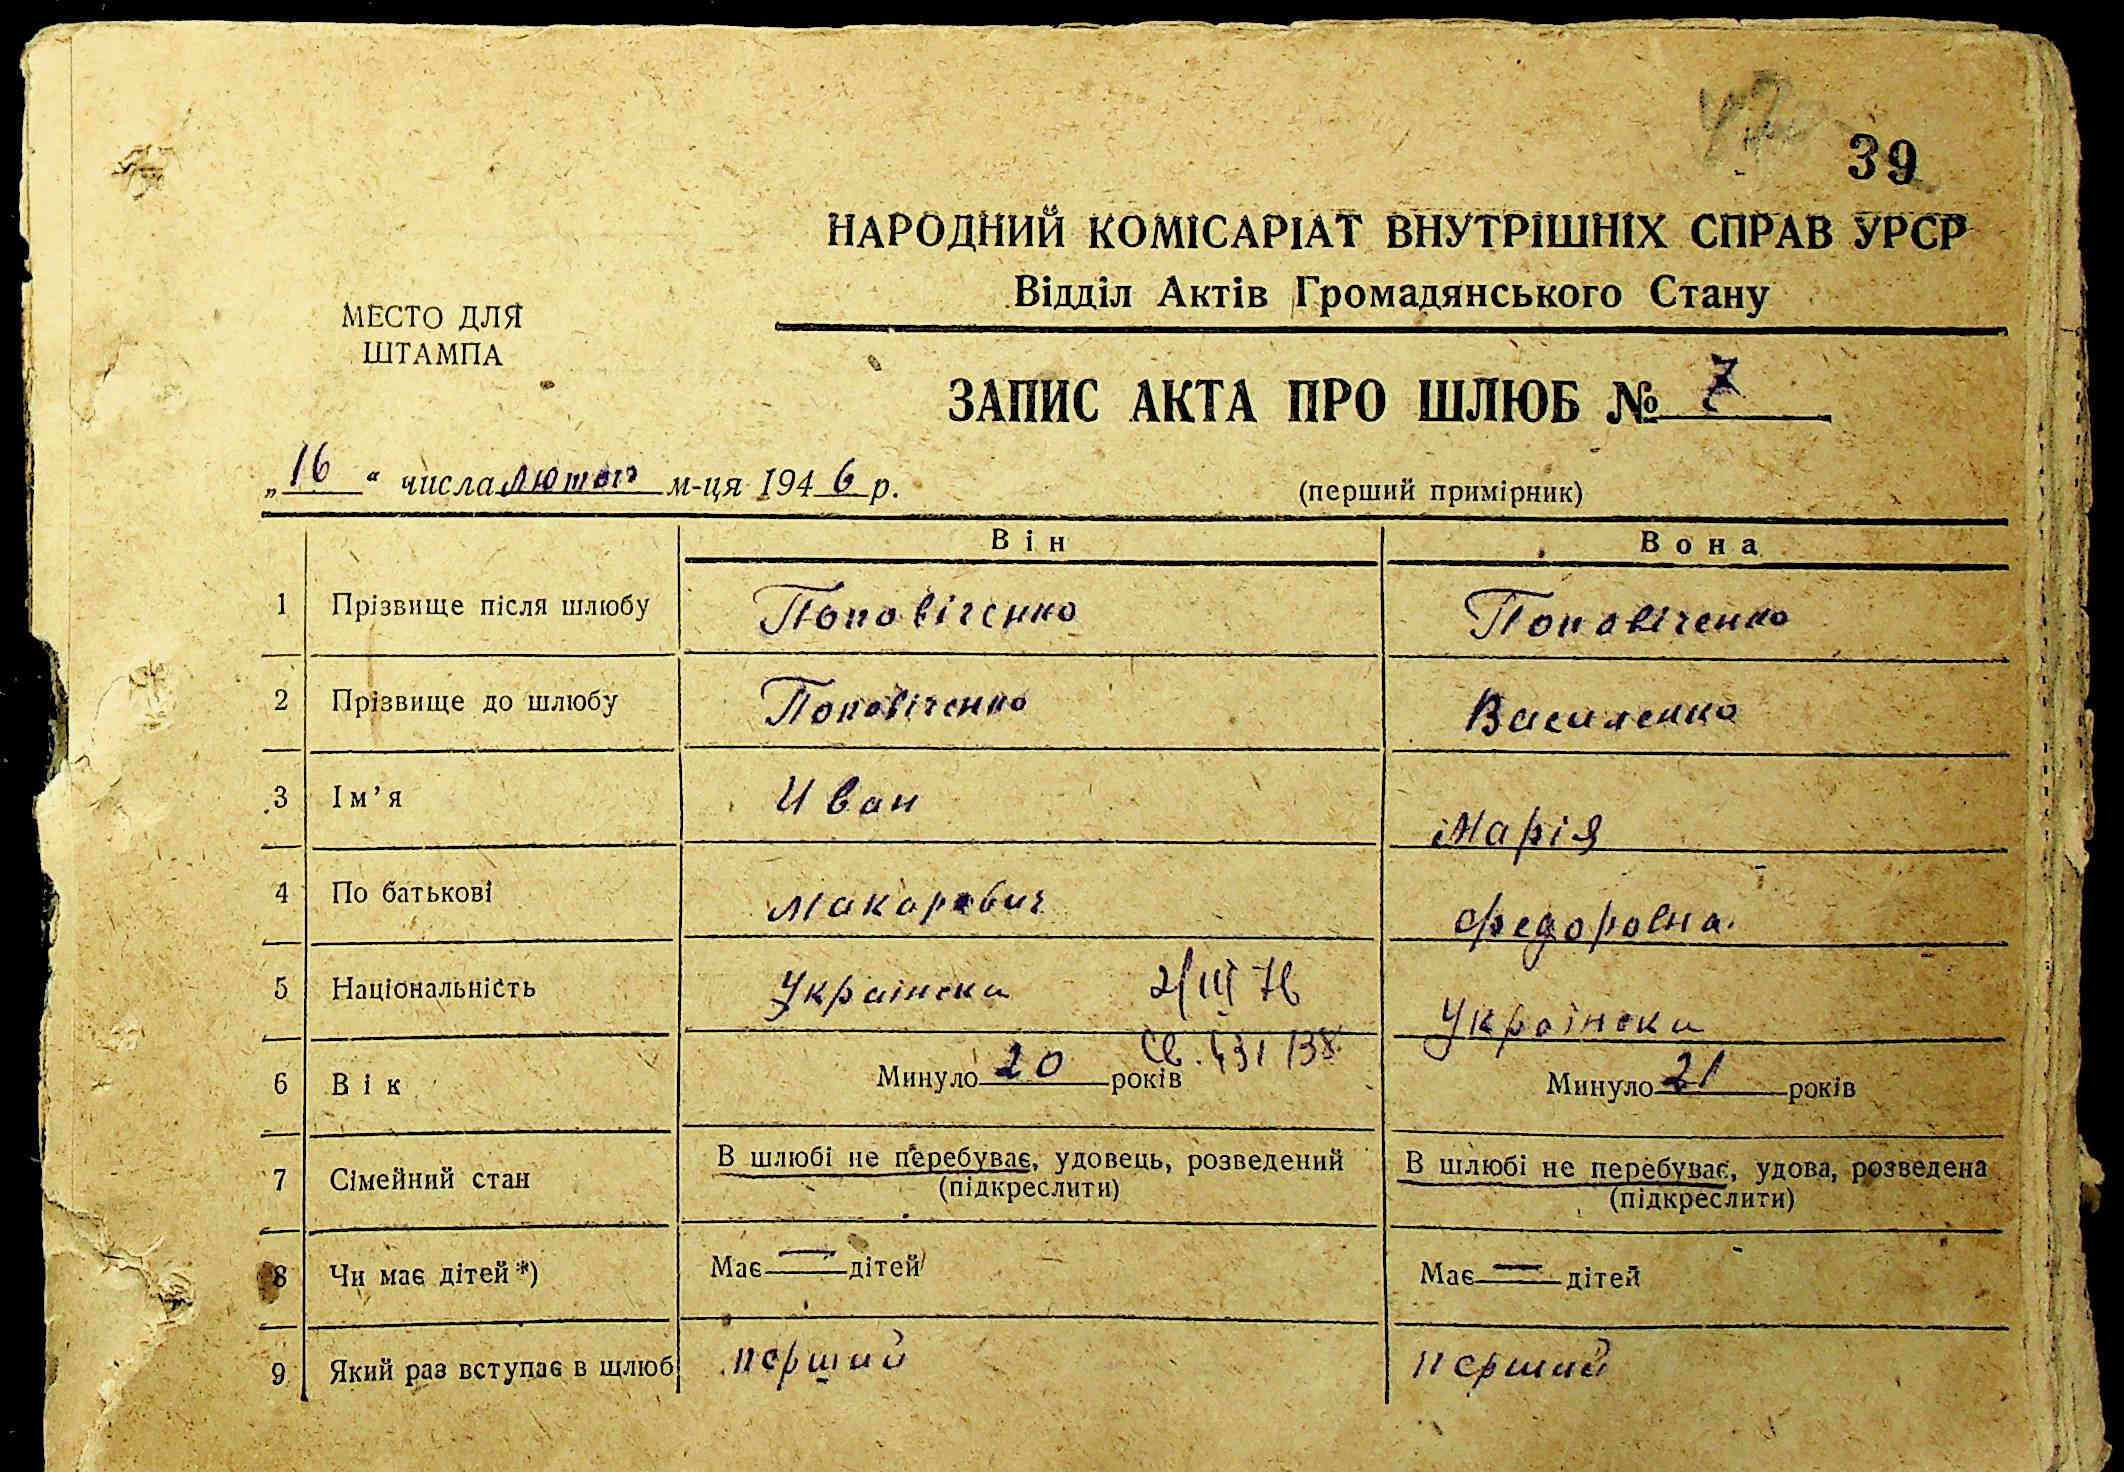 39
НАРОДНИЙ КОМІСАРІАТ ВНУТРІШНІХ СПРАВ УРСР
Відділ Актів Громадянського Стану
МЕСТО ДЛЯ
ШТАМПА
ЗАПИС АКТА ПРО ШЛЮБ № 7
„16“ числа лютого м-ця 1946 р.
(перший примірник)
Він Вона
1 Прізвище після шлюбу Поповіченко Поповіченко
2 Прізвище до шлюбу Поповіченко Василенко
3 Ім’я Иван Марія
4 По батькові Макарович Федоровна.
5 Національність Українски 2/III 76 Українски
Св. 431138
6 Вік Минуло 20 років Минуло 21 років
7 Сімейний стан В шлюбі не перебуває, удовець, розведений В шлюбі не перебуває, удова, розведена
(підкреслити) (підкреслити)
8 Чи має дітей*) Має — дітей Має — дітей
9 Який раз вступає в шлюб перший перший